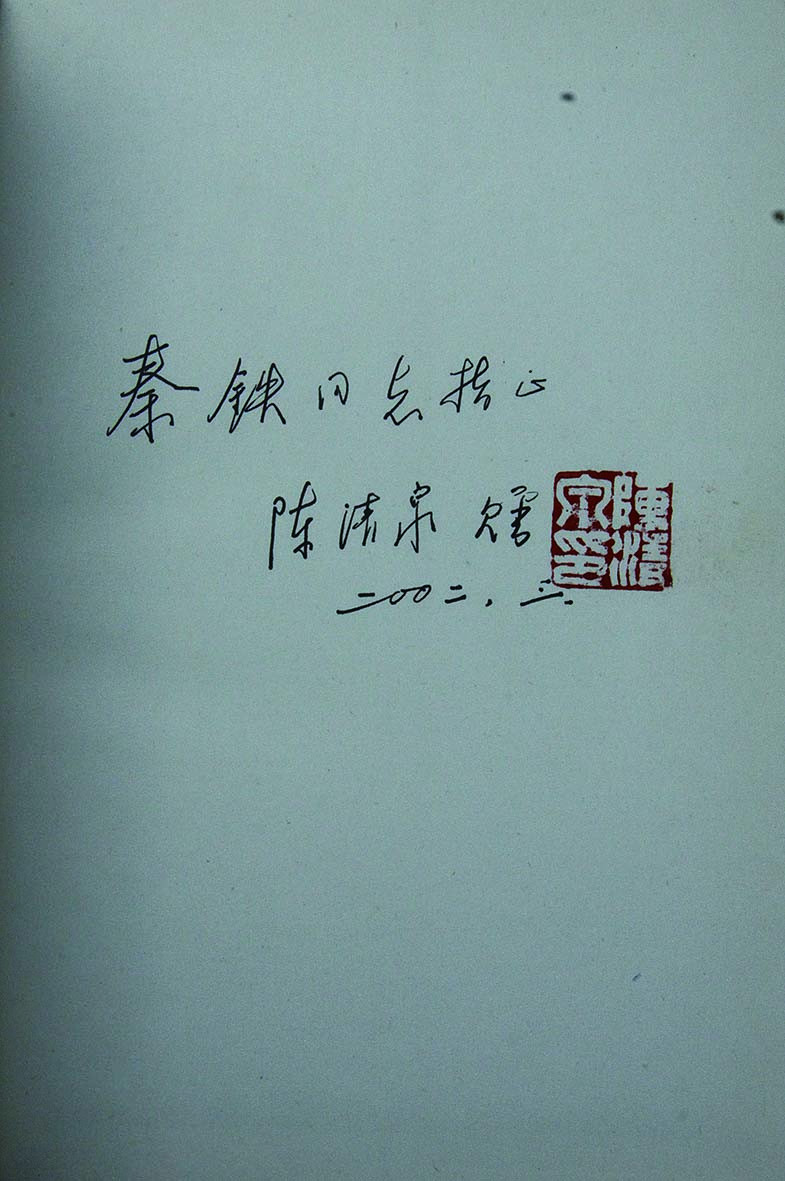 秦铁同志指正
陈清泉 赠
二〇〇二.六.
陳清
泉印